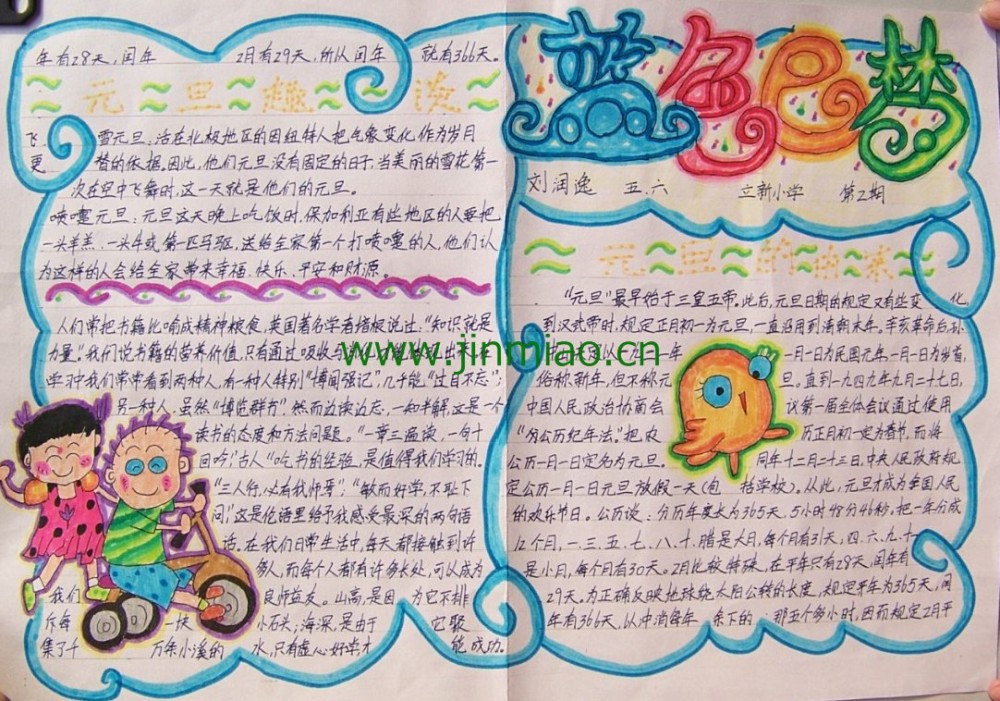 年有28天,闰年 2月有29天,所以闰年 就有366天。
元旦趣谈
飞 雪元旦:活在北极地区的因纽特人把气象变化作为岁月
更 替的依据。因此,他们元旦没有固定的日子,当美丽的雪花第一
次在空中飞舞时,这一天就是他们的元旦。
喷嚏元旦:元旦这天晚上吃饭时,保加利亚有些地区的人要把
一头羊羔、一头牛或第一匹马驱,送给全家第一个打喷嚏的人,他们认
为这样的人会给全家带来幸福、快乐、平安和财源。
人们常把书籍比喻成精神粮食,英国著名学者培根说过:“知识就是
力量”。我们说书籍的营养价值,只有通过吸收与
学习中我们常常看到两种人,有一种人特别“博闻强记”,几乎能“过目不忘”;
另一种人,虽然“博览群书”,然而边读边忘,一知半解,这是一个
读书的态度和方法问题。“一章三遍读,一句十
回吟”,古人“吃书”的经验,是值得我们学习的。
“三人行,必有我师焉”;“敏而好学,不耻下
问”,这是伦语里给予我感受最深的两句话
话。在我们日常生活中,每天都接触到许
多人,而每个人都有许多长处,可以成为
我们 良师益友。山高,是因 为它不排
斥每 一块 小石头;海深,是由于 它聚
集了千 万条小溪的 水,只有虚心好学才 能成功。
蓝色色梦
刘润逸 五.六 立新小学 第2期
元旦的由来
“元旦”最早始于三皇五帝。此后,元旦日期的规定又有些变 化,
到汉武帝时,规定正月初一为元旦,一直沿用到清朝末年。辛亥革命后,孙
一年 一月一日为民国元年,一月一日为岁首,
俗称新年,但不称元 旦。直到一九四九年九月二十七日,
中国人民政治协商会 议第一届全体会议通过使用
“公历纪年法”,把农 历正月初一定为春节,而将
公历一月一日定名为元旦。 同年十二月二十三日,中央人民政府规
定公历一月一日元旦放假一天(包 括学校)。从此,元旦才成为全国人民
的欢乐节日。公历说:分历年度长为365天,5小时48分46秒,把一年分成
12个月,一、三、五、七、八、十、腊是大月,每个月有31天,四、六、九、十一
是小月,每个月有30天。2月比较特殊,在平年只有28天,闰年有
29天。为正确反映地球绕太阳公转的长度,规定平年为365天,闰
年有366天,以冲消每年 余下的 那五个多小时,因而规定2月平
www.jinmiao.cn